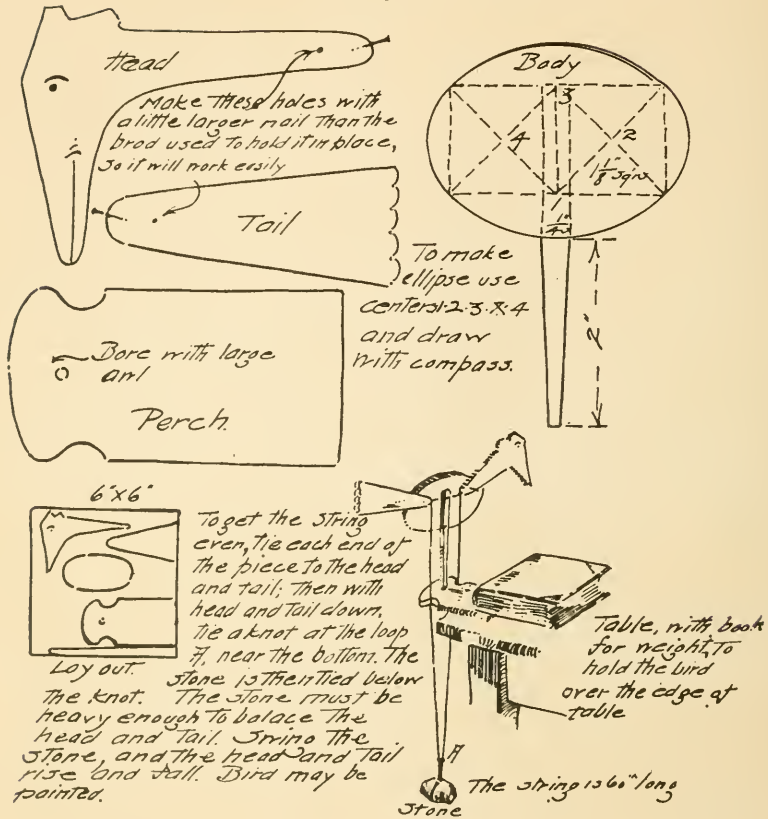 Head
Make These holes with
a little larger nail Than the
brad used to hold it in place,
so it will work easily
Body
3
4
2
1 1/8" sqrs
1/4"
2"
Tail
To make
ellipse use
centers 1-2-3-&-4
and draw
with compass.
Bore with large
awl
Perch.
6"x6"
Lay out.
To get the string
even, tie each end of
the piece to the head
and tail; Then with
head and tail down,
tie a knot at the loop
A, near the bottom. The
stone is then tied below
the knot. The stone must be
heavy enough to balace The
head and Tail. Swing The
stone, and the head and Tail
rise and fall. Bird may be
painted.
Table, with book
for weight, To
hold the bird
over the edge of
table
A
The string is 60" long
Stone